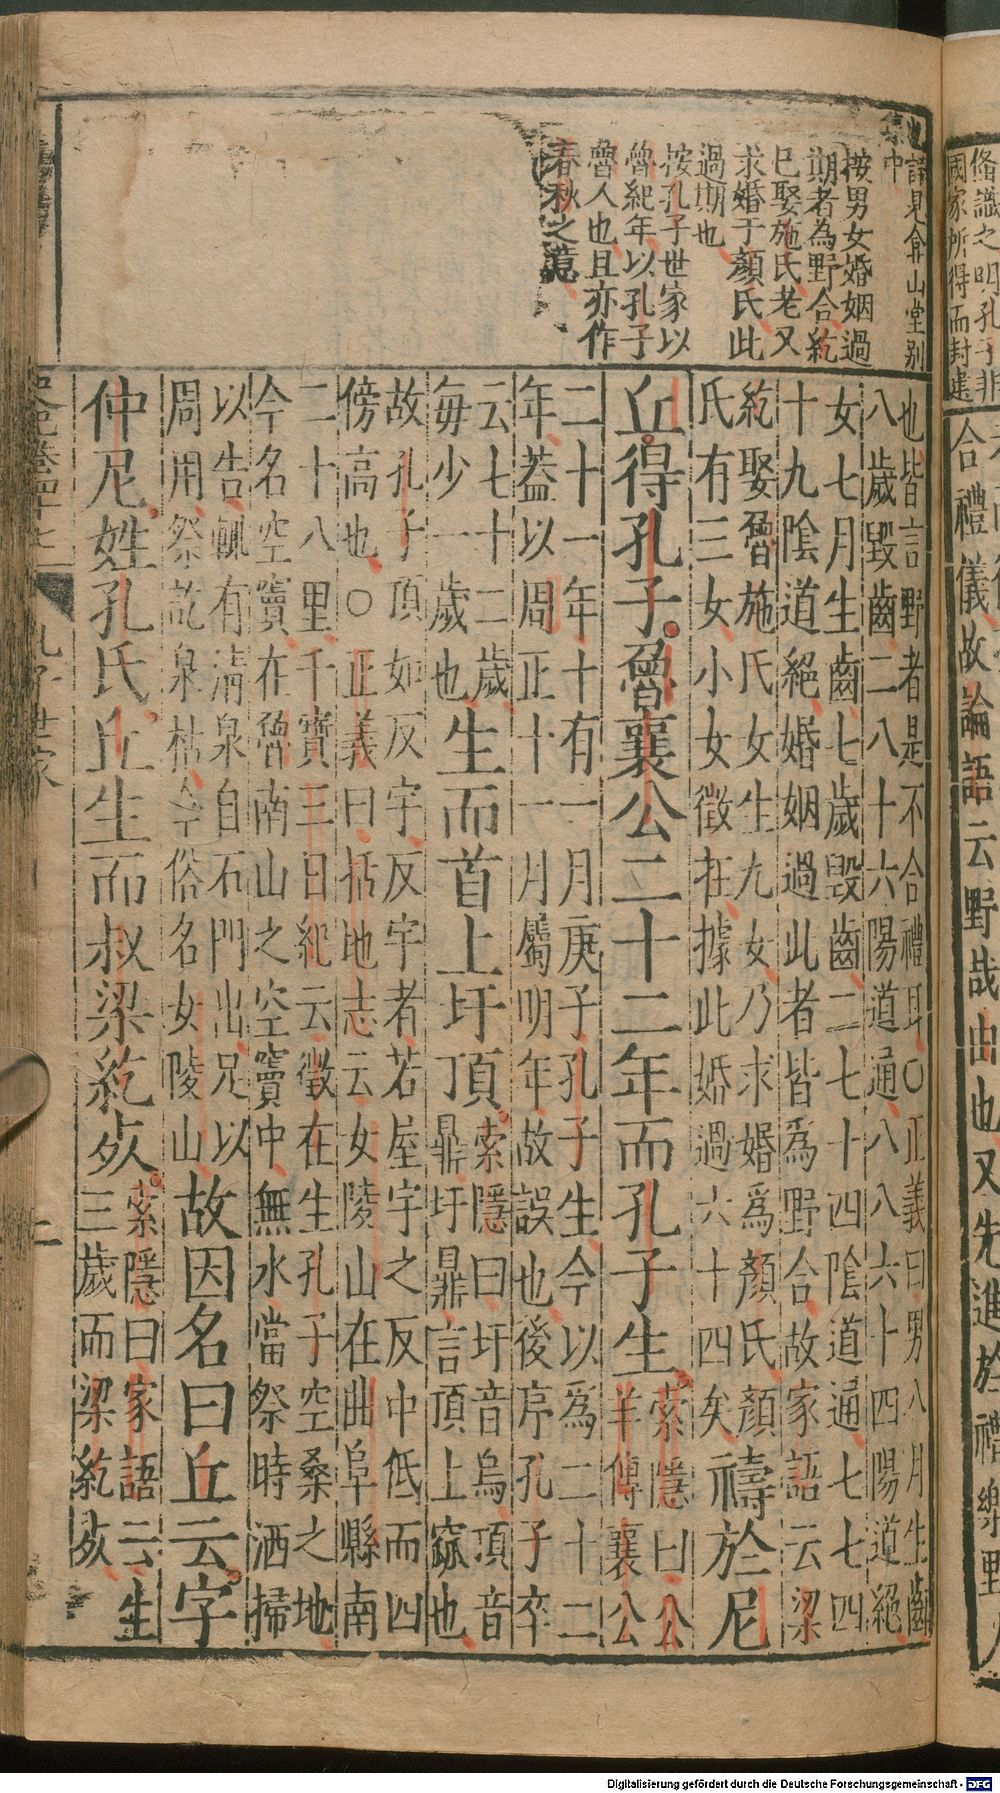 也詳見弇山堂别
集中
按男女婚姻過
期者為野合紇
巳娶施氏老又
求婚于顔氏此
過期也
按孔子世家以
魯紀年以孔子
魯人也且亦作
春秋之意
也皆言野者是不合禮耳○正義曰男八月生齒
八歲毀齒二八十六陽道通八八六十四陽道絕
女七月生齒七歲毀齒二七十四陰道通七七四
十九陰道絕婚姻過此者皆爲野合故家語云梁
紇娶魯施氏女生九女乃求婚爲顏氏顏
氏有三女小女徵在據此婚過六十四矣
禱於尼
丘得孔子魯襄公二十二年而孔子生
索隱曰公
羊傳襄公
二十一年十有一月庚子孔子生今以為二十二
年葢以周正十一月屬明年故誤也後序孔子卒
云七十二歲
每少一歲也
生而首上圩頂
索隱曰圩音烏頂音
鼎圩鼎言頂上窳也
故孔子頂如反宇反宇者若屋宇之反中低而四
傍高也○正義曰括地志云女陵山在曲阜縣南
二十八里干寶三日紀云徵在生孔子空桑之地
今名空竇在魯南山之空竇中無水當祭時洒掃
以告輒有清泉自石門出足以
周用祭訖泉枯今俗名女陵山
故因名曰丘云字
仲尼姓孔氏丘生而叔梁紇歿
索隱曰家語云生
三歲而梁紇歿
史記卷四十七
孔子世家
二
脩識之明孔子非
國家所得而封建
合禮儀故論語云野哉由也又先進於禮樂野人
Digitalisierung gefördert durch die Deutsche Forschungsgemeinschaft - DFG